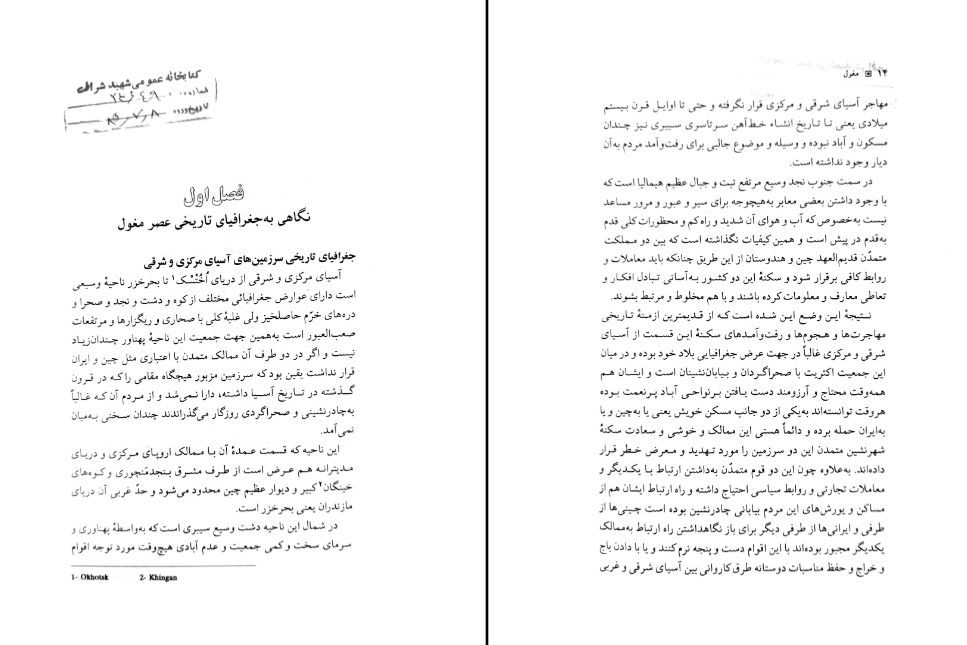 کتابخانه عمومی شهید شراف
شماره
تاریخ
فصل اول
نگاهی به‌جغرافیای تاریخی عصر مغول
جغرافیای تاریخی سرزمین‌های آسیای مرکزی و شرقی
آسیای مرکزی و شرقی از دریای اُخُتسْک۱ تا بحرخزر ناحیهٔ وسیعی
است دارای عوارض جغرافیائی مختلف از کوه و دشت و نجد و صحرا و
دره‌های خرّم حاصلخیز ولی غلبهٔ کلی با صحاری و ریگزارها و مرتفعات
صعب‌العبور است به‌همین جهت جمعیت این ناحیهٔ پهناور چندان‌زیاد
نیست و اگر در دو طرف آن ممالک متمدن با اعتباری مثل چین و ایران
قرار نداشت یقین بود که سرزمین مزبور هیچگاه مقامی را که در قرون
گذشته در تاریخ آسیا داشته، دارا نمی‌شد و از مردم آن که غالباً
به‌چادرنشینی و صحراگردی روزگار می‌گذراندند چندان سخنی به‌میان
نمی‌آمد.
این ناحیه که قسمت عمدهٔ آن با ممالک اروپای مرکزی و دریای
مدیترانه هم عرض است از طرف مشرق بنجدمَنچوری و کوه‌های
خینگان۲ کبیر و دیوار عظیم چین محدود می‌شود و حدّ غربی آن دریای
مازندران یعنی بحرخزر است.
در شمال این ناحیه دشت وسیع سیبری است که به‌واسطهٔ پهناوری و
سرمای سخت و کمی جمعیت و عدم آبادی هیچ‌وقت مورد توجه اقوام
1- Okhotsk 2- Khingan
۱۴ ▣ مغول
مهاجر آسیای شرقی و مرکزی قرار نگرفته و حتی تا اوایل قرن بیستم
میلادی یعنی تا تاریخ انشاء خط‌آهن سرتاسری سیبری نیز چندان
مسکون و آباد نبوده و وسیله و موضوع جالبی برای رفت‌وآمد مردم به‌آن
دیار وجود نداشته است.
در سمت جنوب نجد وسیع مرتفع تبت و جبال عظیم هیمالیا است که
با وجود داشتن بعضی معابر به‌هیچوجه برای سیر و عبور و مرور مساعد
نیست به‌خصوص که آب و هوای آن شدید و راه کم و محظورات کلی قدم
به‌قدم در پیش است و همین کیفیات نگذاشته است که بین دو مملکت
متمدّن قدیم‌العهد چین و هندوستان از این طریق چنانکه باید معاملات و
روابط کافی برقرار شود و سکنهٔ این دو کشور به‌آسانی تبادل افکار و
تعاطی معارف و معلومات کرده باشند و با هم مخلوط و مرتبط بشوند.
نتیجهٔ این وضع این شده است که از قدیمترین ازمنهٔ تاریخی
مهاجرت‌ها و هجوم‌ها و رفت‌وآمدهای سکنهٔ این قسمت از آسیای
شرقی و مرکزی غالباً در جهت عرض جغرافیایی بلاد خود بوده و در میان
این جمعیت اکثریت با صحراگردان و بیابان‌نشینان است و ایشان هم
همه‌وقت محتاج و آرزومند دست یافتن برنواحی آباد پرنعمت بوده
هروقت توانسته‌اند به‌یکی از دو جانب مسکن خویش یعنی یا به‌چین و یا
به‌ایران حمله برده و دائماً هستی این ممالک و خوشی و سعادت سکنهٔ
شهرنشین متمدن این دو سرزمین را مورد تهدید و معرض خطر قرار
داده‌اند. به‌علاوه چون این دو قوم متمدّن به‌داشتن ارتباط با یکدیگر و
معاملات تجارتی و روابط سیاسی احتیاج داشته و راه ارتباط ایشان هم از
مساکن و یورش‌های این مردم بیابانی چادرنشین بوده است چینی‌ها از
طرفی و ایرانی‌ها از طرفی دیگر برای باز نگاهداشتن راه ارتباط به‌ممالک
یکدیگر مجبور بوده‌اند با این اقوام دست و پنجه نرم کنند و یا با دادن باج
و خراج و حفظ مناسبات دوستانه طرق کاروانی بین آسیای شرقی و غربی